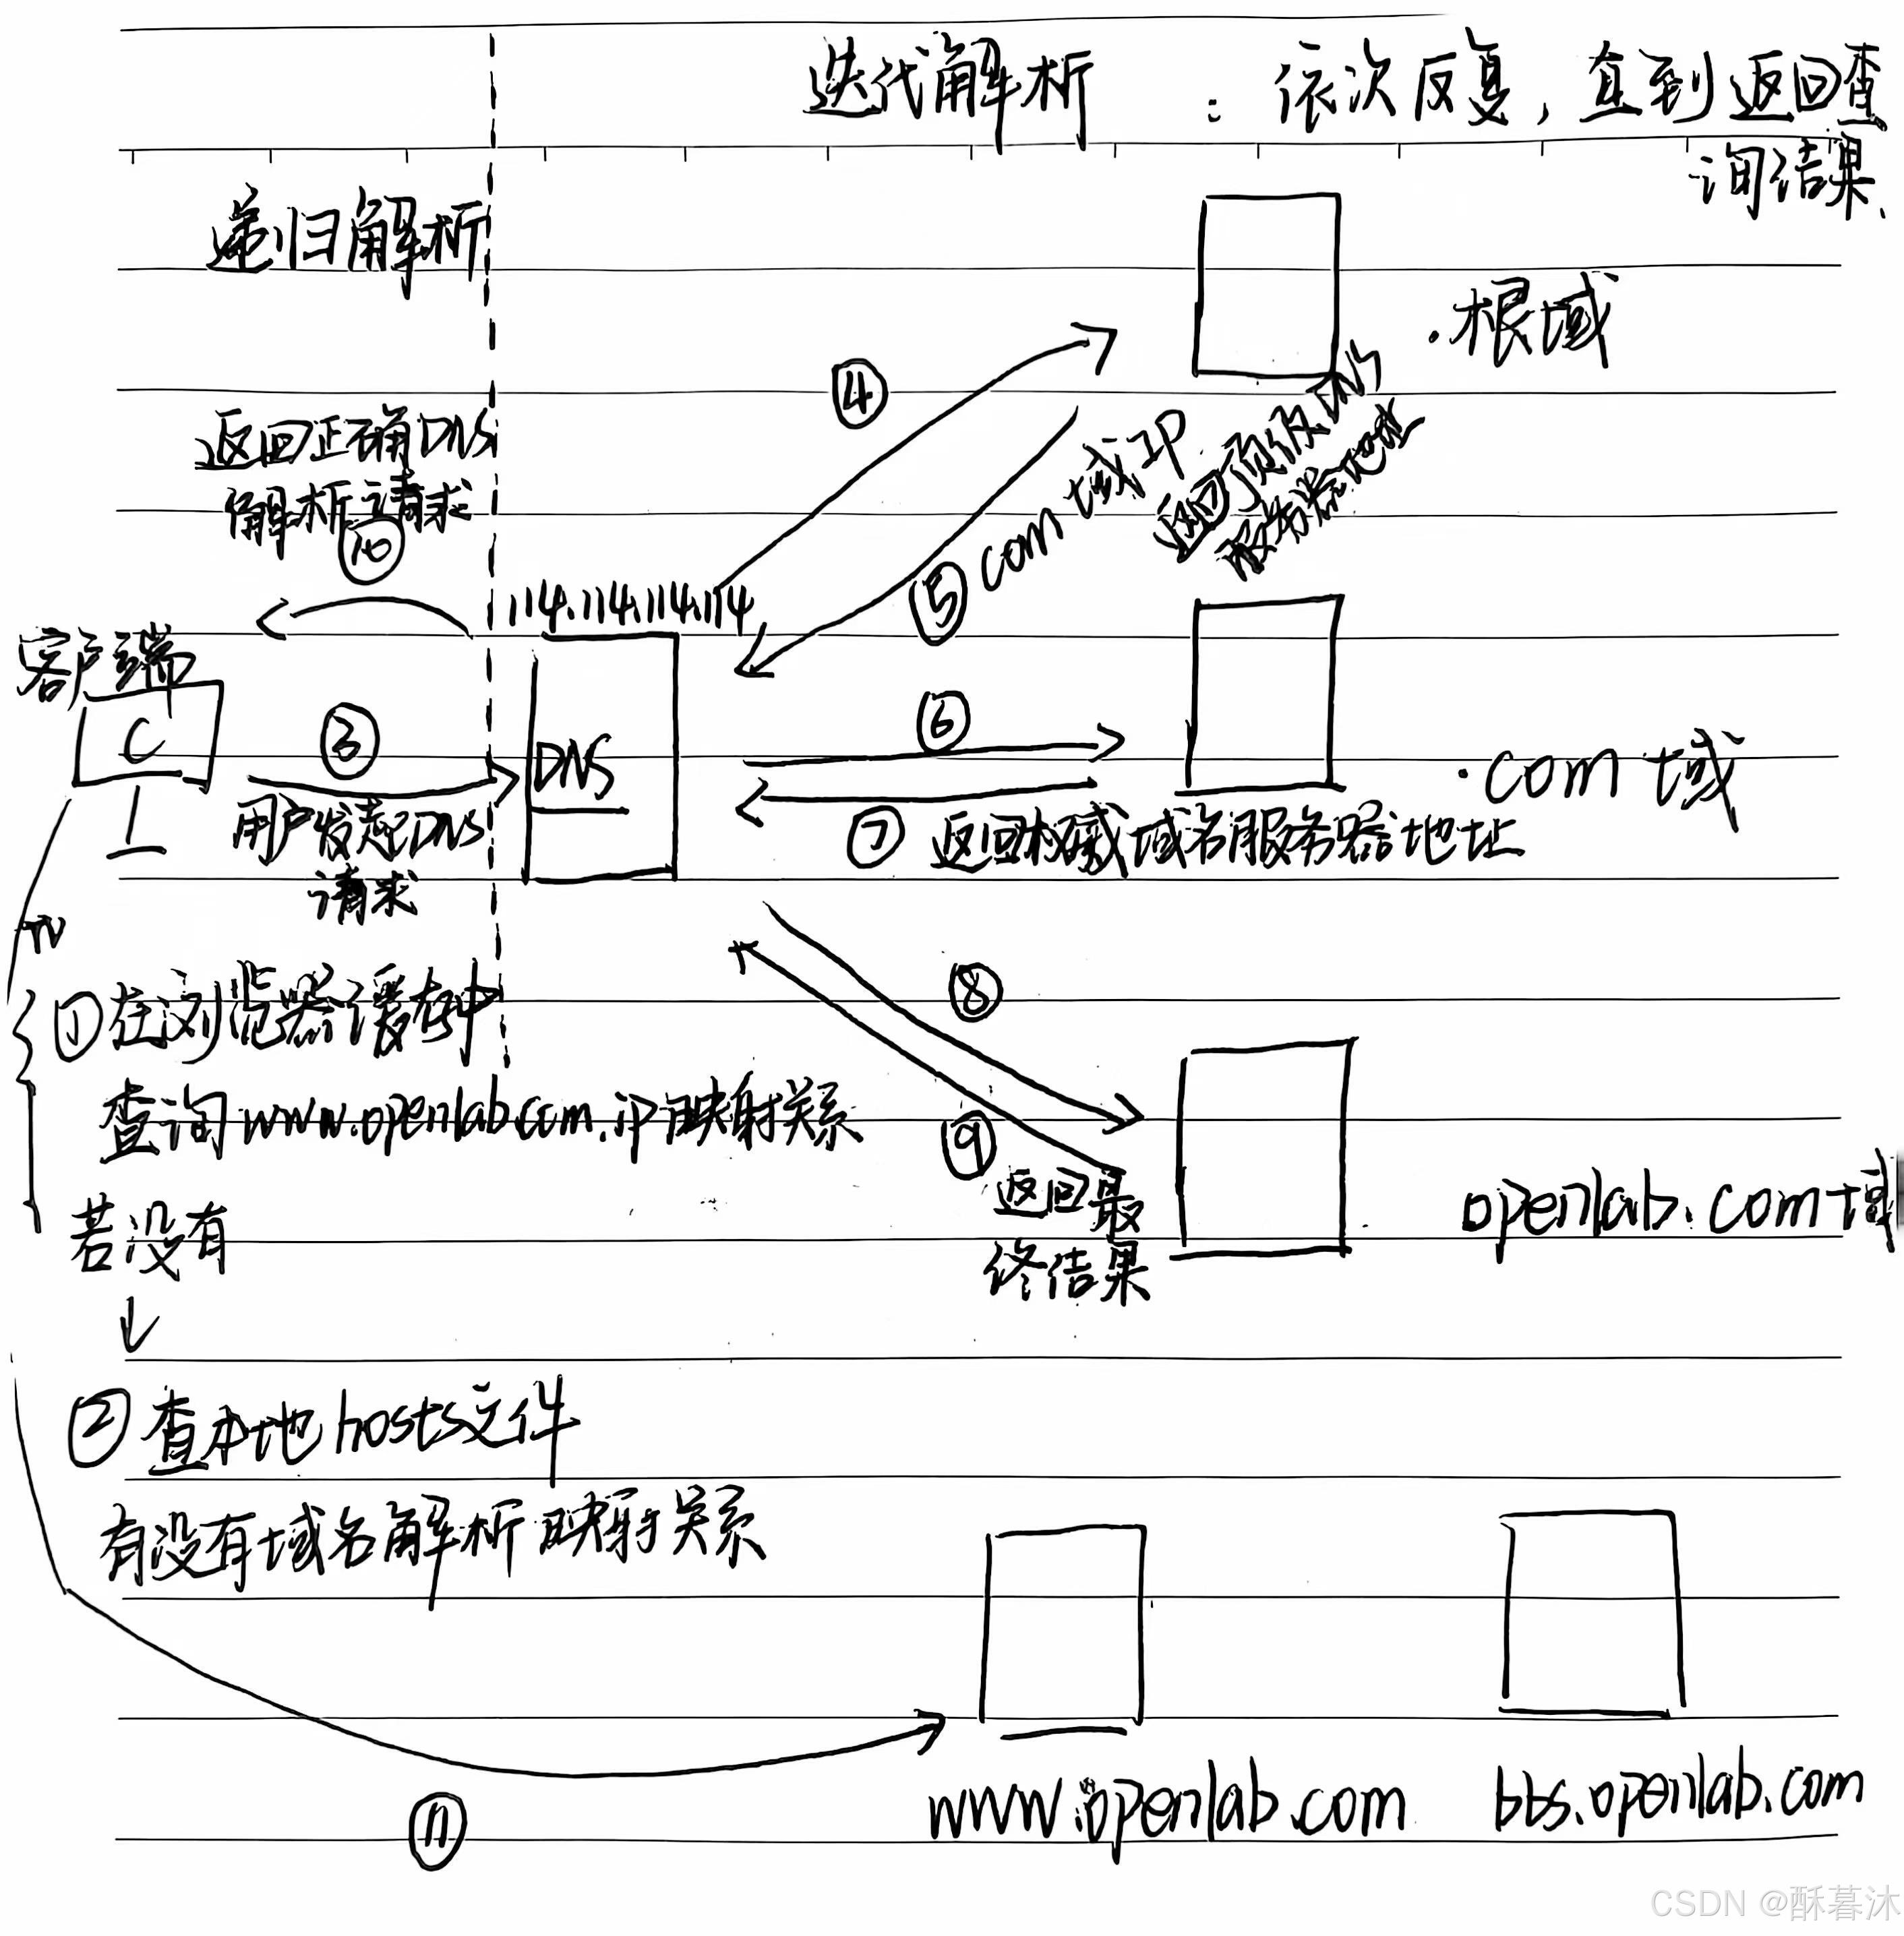 迭代解析 : 依次反复, 直到返回查
询结果.
递归解析
.根域
④
返回正确DNS
解析请求
⑩
⑤ com域IP
返回顶级DNS
服务器地址
114.114.114.114
客户端
C
③
DNS
⑥
.com域
用户发起DNS
请求
⑦ 返回权威域名服务器地址
⑧
①在浏览器缓存中
查询www.openlab.com.ip映射关系
⑨
返回最
终结果
openlab.com域
若没有
②查本地hosts文件
有没有域名解析映射关系
www.openlab.com
bbs.openlab.com
⑪
CSDN @酥暮沐